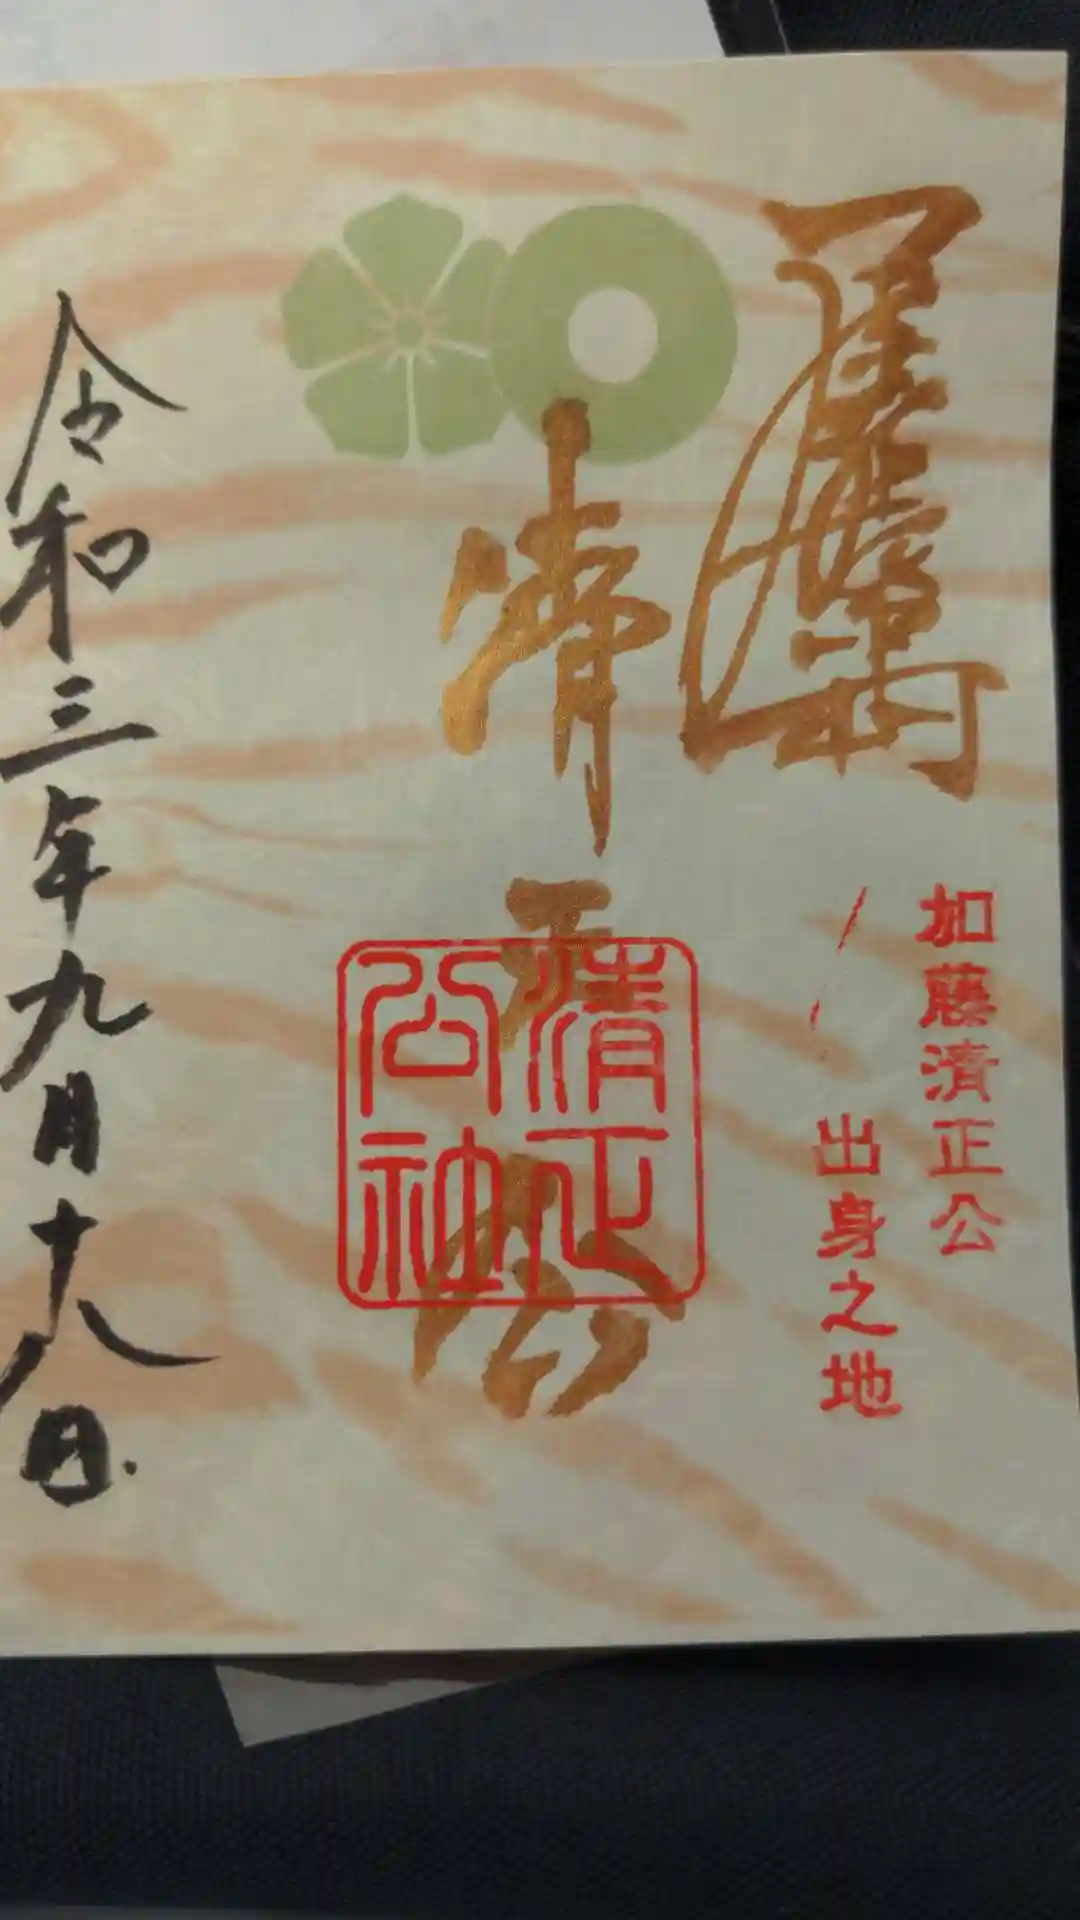 加藤清正公
出身之地
清正公
清正
公社
令和三年九月十八日